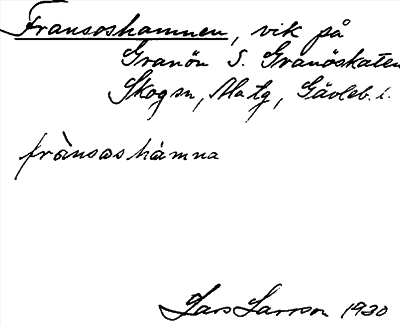 Fransoshamnen, vik på
Granön S. Granöskaten
Skogsn, Ala tg, Gävleb. l.
frànsashámna
Lars Larsson 1930